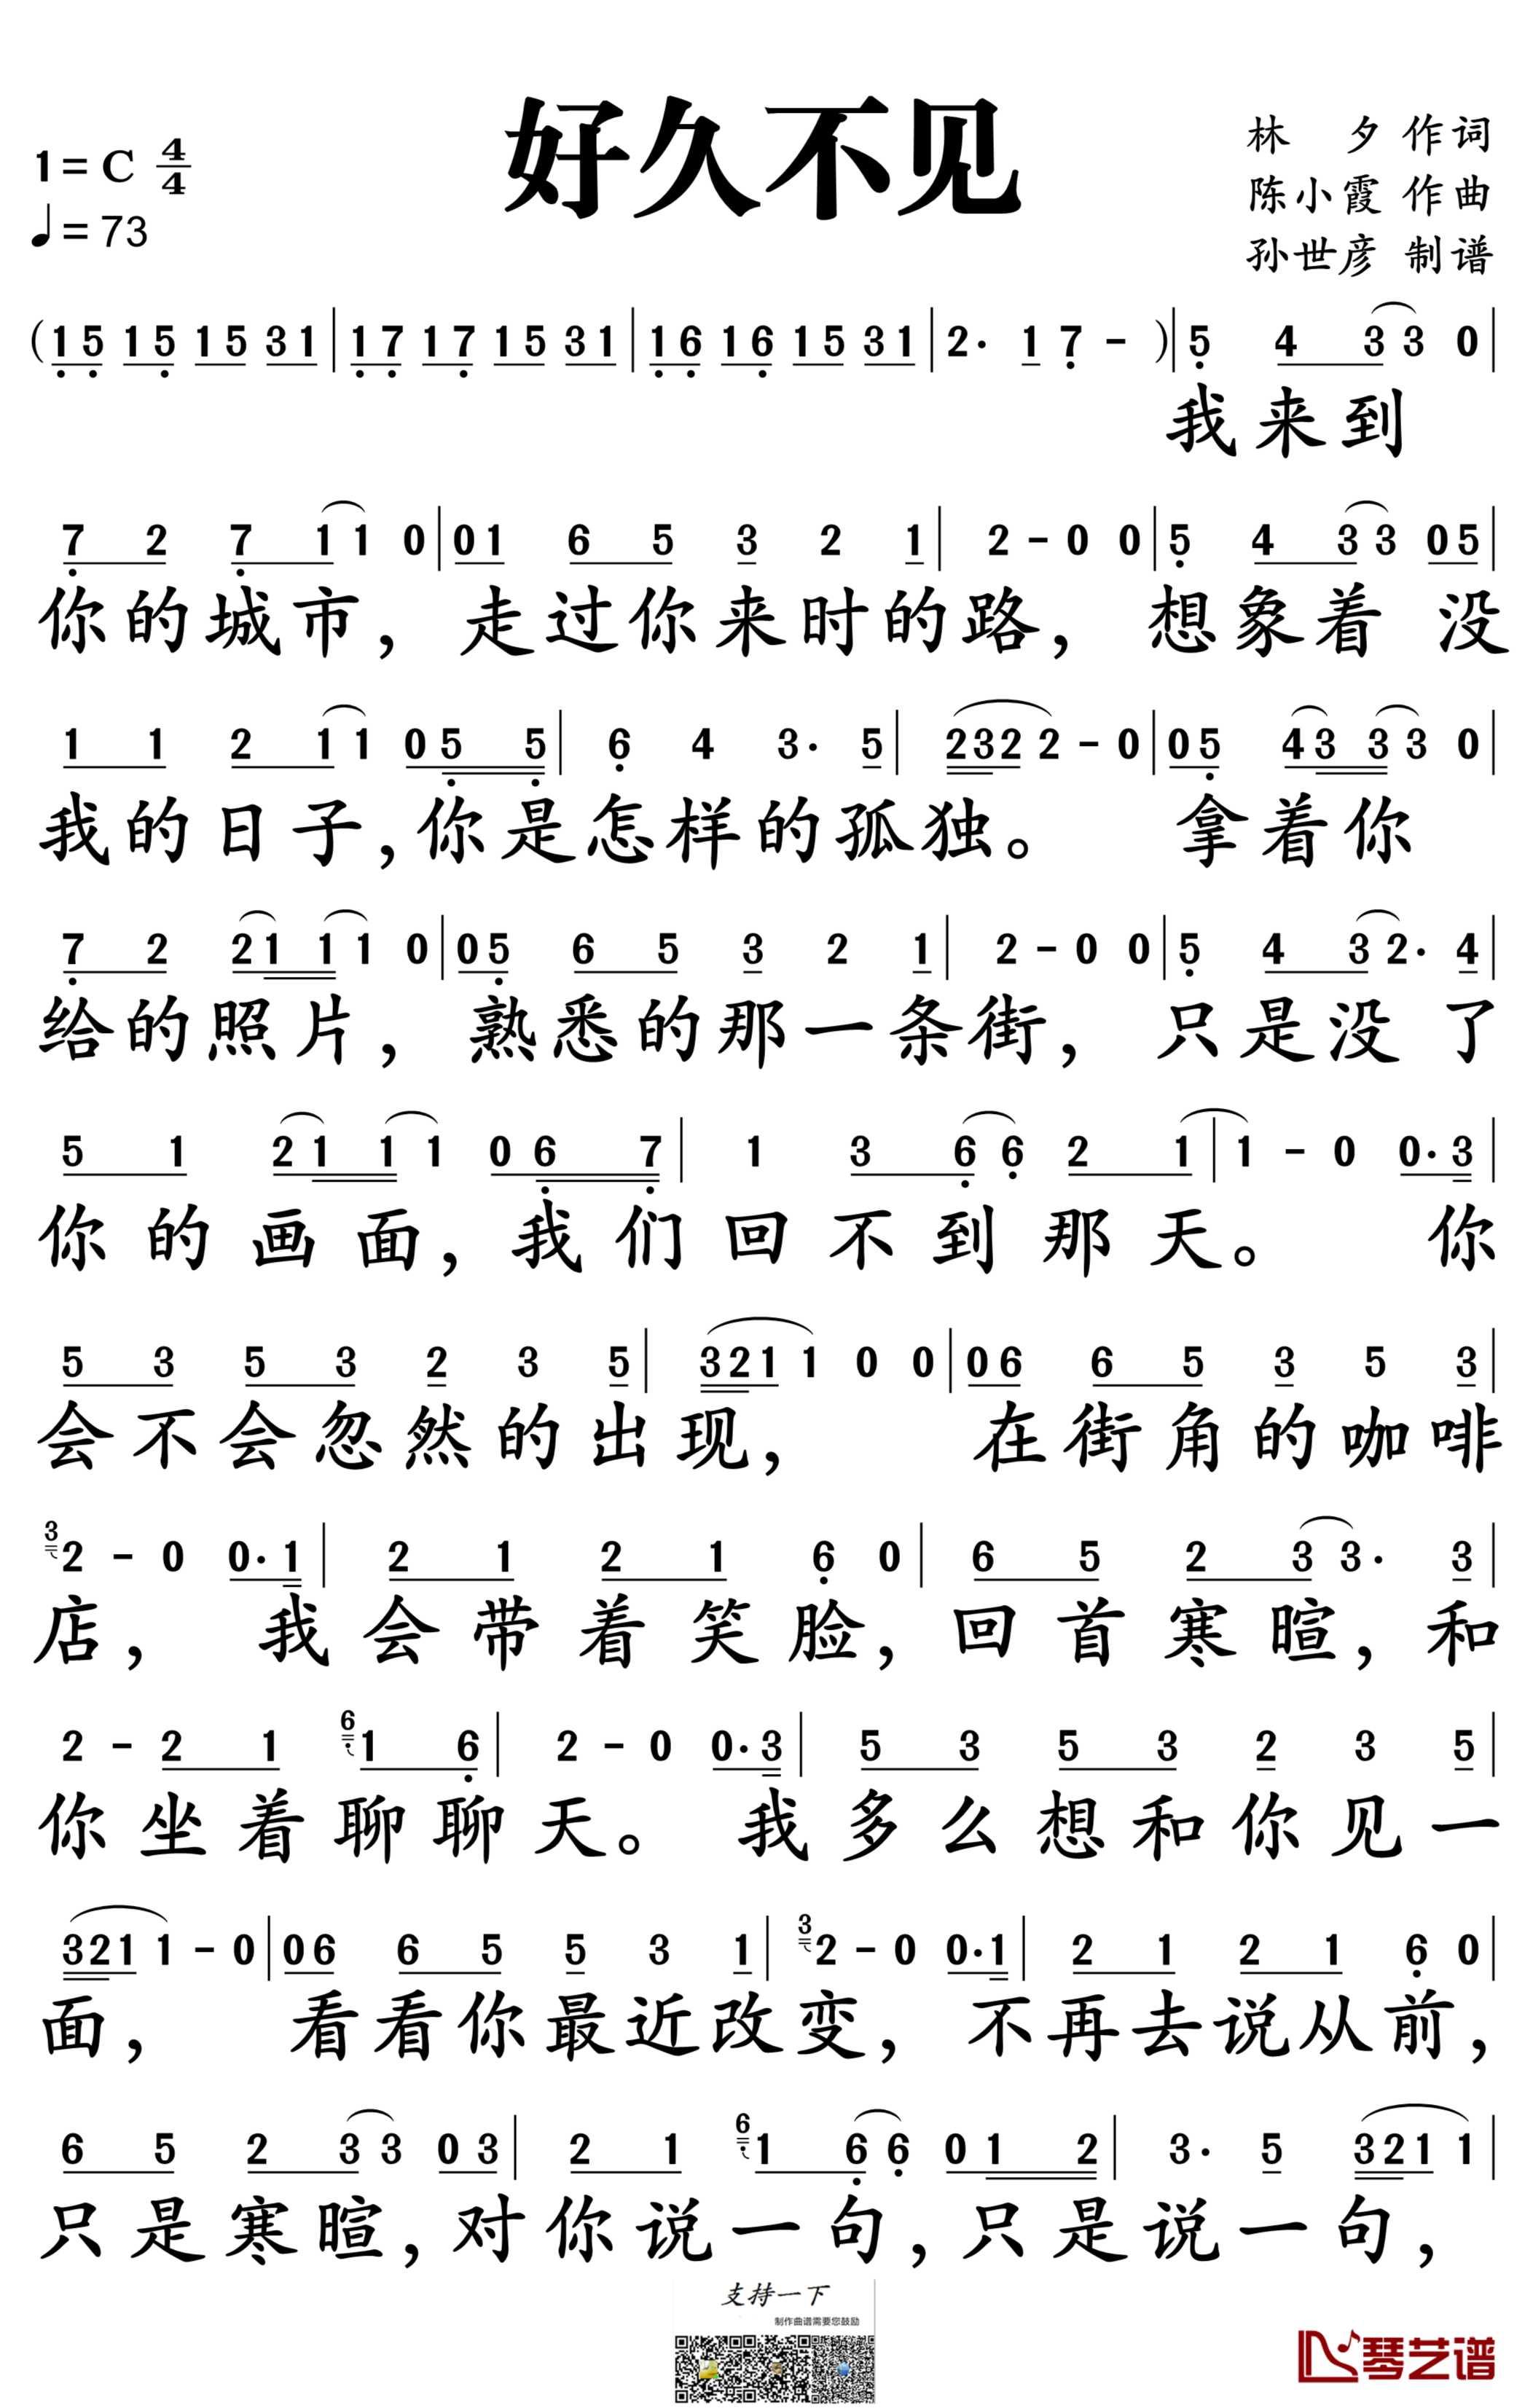 好久不见
1=C 4/4
♩=73
林 夕 作词
陈小霞 作曲
孙世彦 制谱
(15 15 15 31|17 17 15 31|16 16 15 31|2· 1 7 -)|5 4 33 0|
我来到
7 2 7 11 0|01 6 5 3 2 1|2 - 0 0|5 4 33 05|
你的城市，走过你来时的路，想象着 没
1 1 2 11 0 5 5|6 4 3· 5|2322 - 0|05 43 33 0|
我的日子，你是怎样的孤独。 拿着你
7 2 21 11 0|05 6 5 3 2 1|2 - 0 0|5 4 32· 4|
给的照片，熟悉的那一条街，只是没了
5 1 21 11 0 6 7|1 3 66 2 1|1 - 0 0·3|
你的画面，我们回不到那天。 你
5 3 5 3 2 3 5|3211 0 0|06 6 5 3 5 3|
会不会忽然的出现， 在街角的咖啡
32 - 0 0·1|2 1 2 1 6 0|6 5 2 33· 3|
店， 我会带着笑脸，回首寒暄，和
2 - 2 1 61 6|2 - 0 0·3|5 3 5 3 2 3 5|
你坐着聊聊天。 我多么想和你见一
3211 - 0|06 6 5 5 3 1|32 - 0 0·1|2 1 2 1 6 0|
面， 看看你最近改变，不再去说从前，
6 5 2 33 03|2 1 61 66 0 1 2|3· 5 3211|
只是寒暄，对你说一句，只是说一句，
支持一下
制作曲谱需要您鼓励
琴艺谱